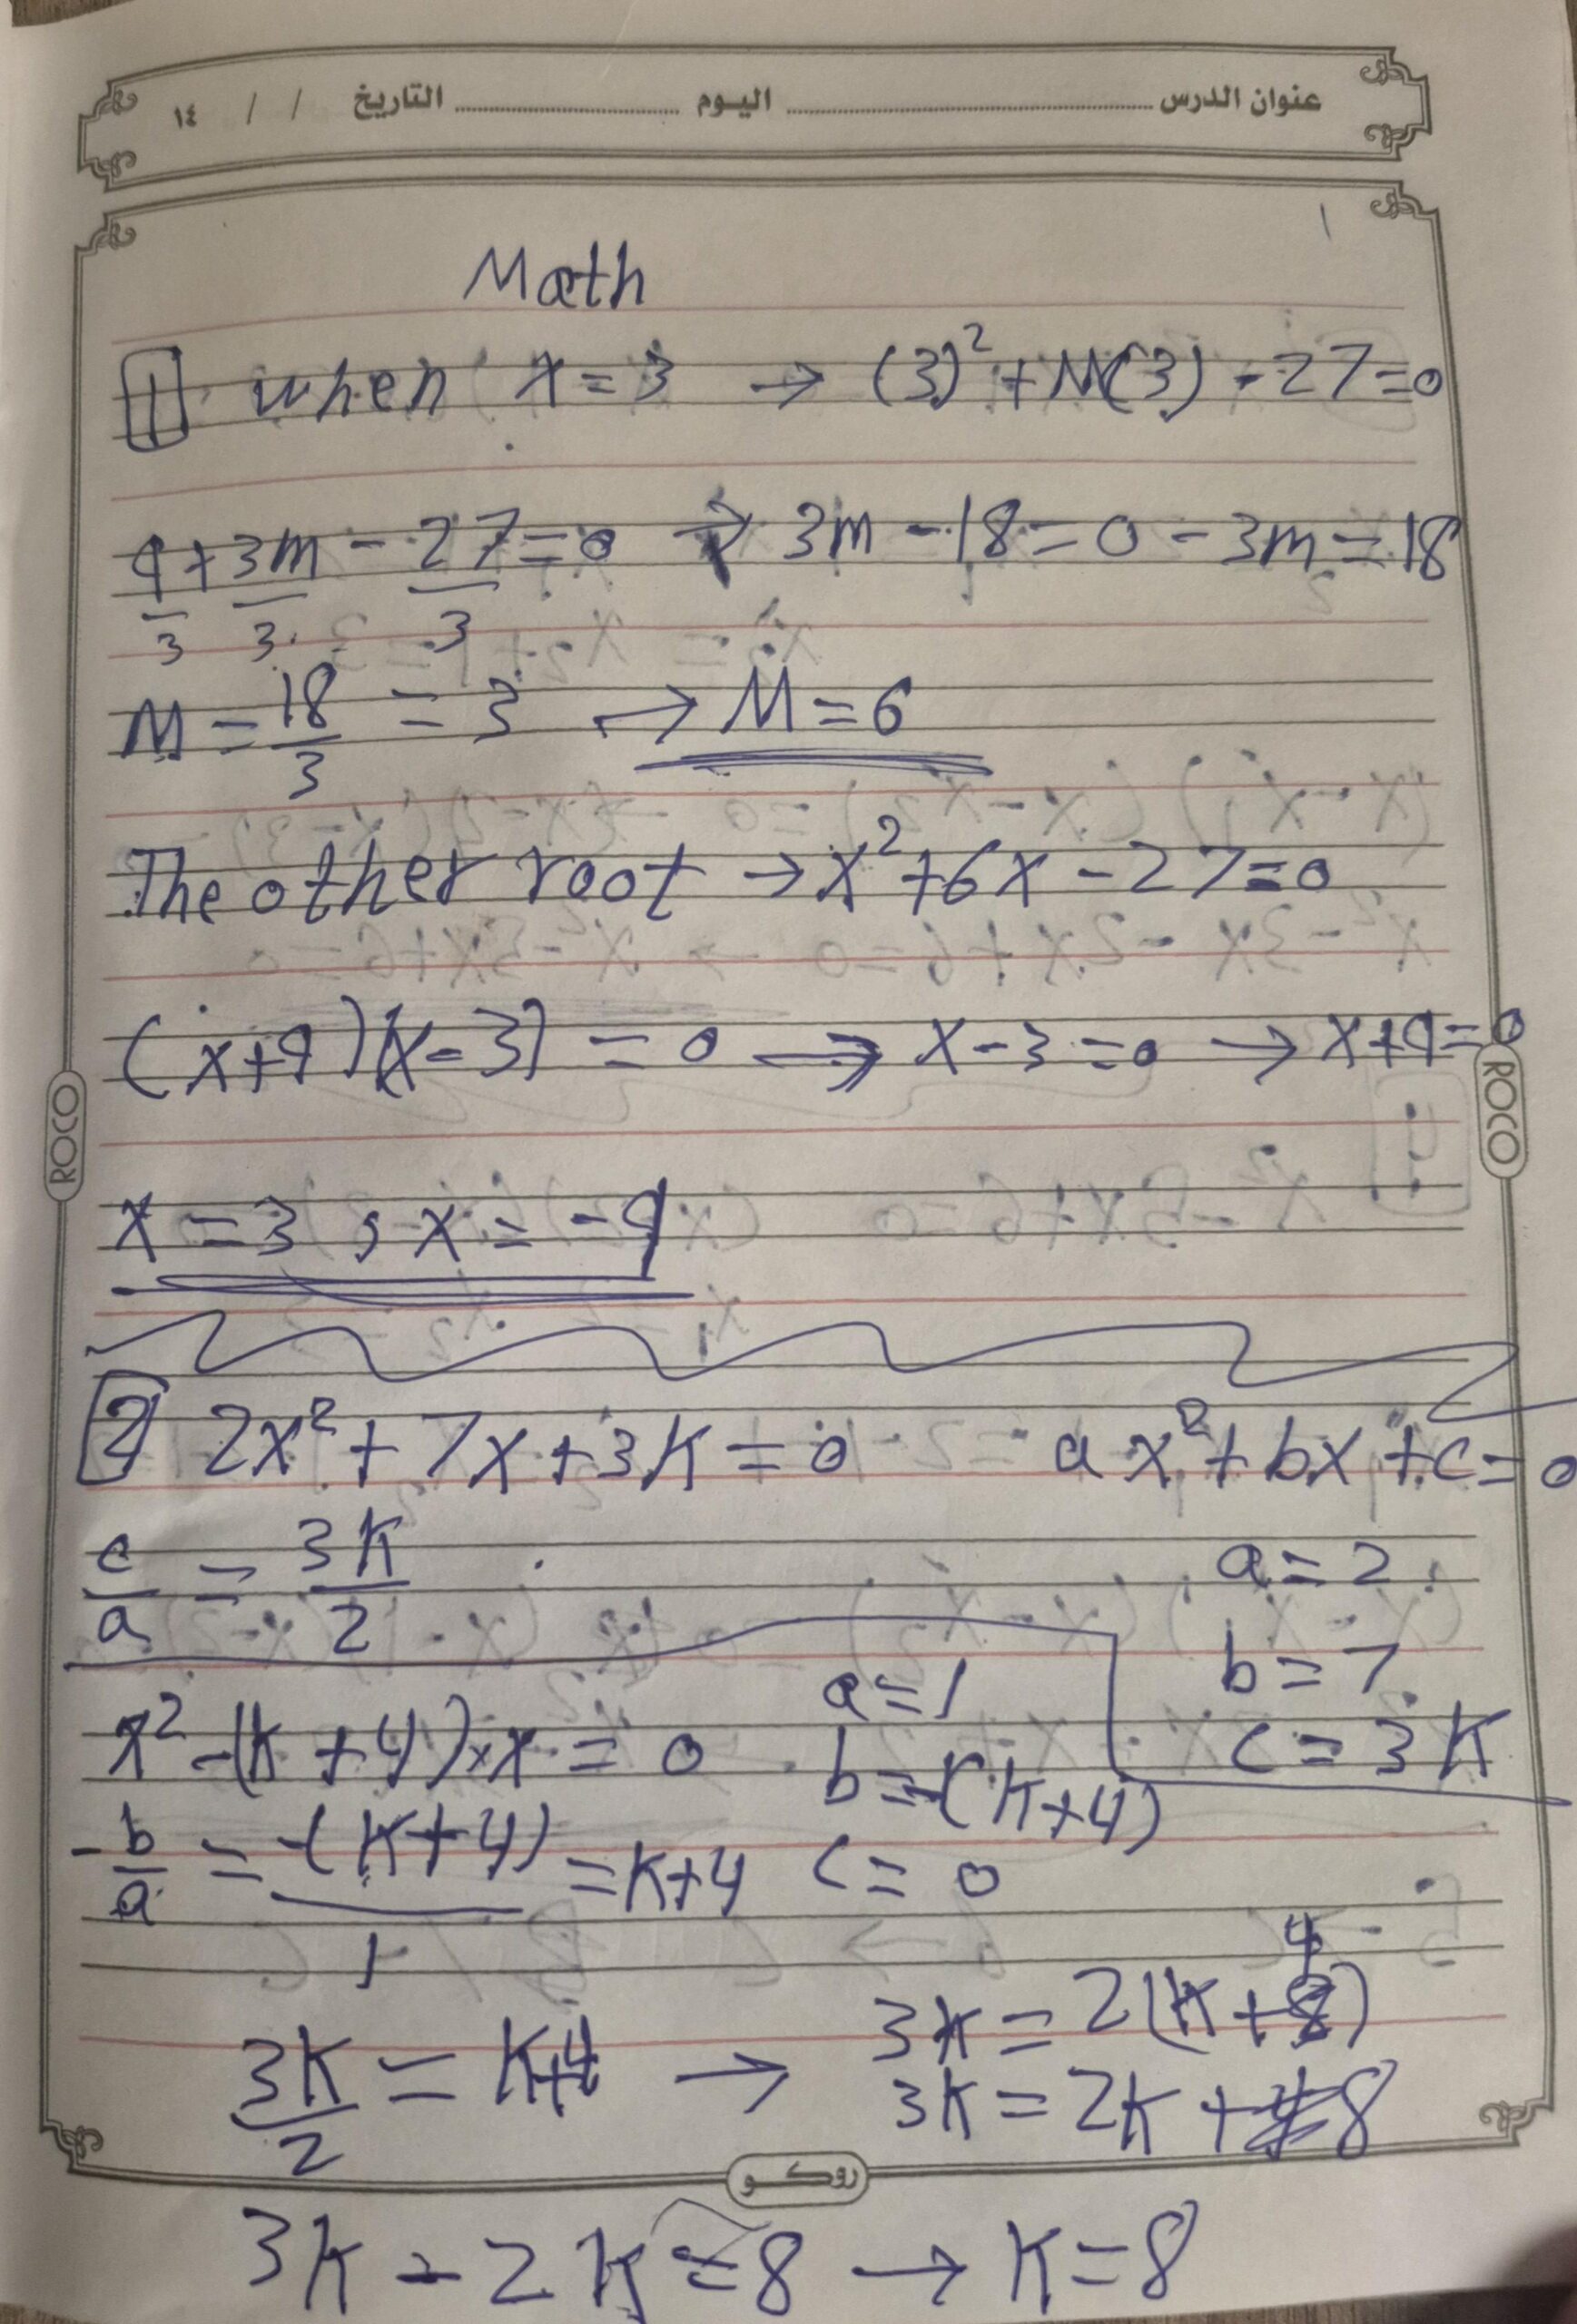 عنوان الدرس ........ اليوم ........ التاريخ / / ١٤
Math
1 when x = 3 → (3)² + M(3) - 27 = 0
9 + 3m - 27 = 0 → 3m - 18 = 0 - 3m = 18
3 3 3
M = 18/3 = 3 → M = 6
The other root → x² + 6x - 27 = 0
(x+9)(x-3) = 0 → x - 3 = 0 → x + 9 = 0
x = 3 , x = -9
ROCO
ROCO
2 2x² + 7x + 3K = 0 ax² + bx + c = 0
c/a = 3K/2
a = 2
b = 7
c = 3K
x² - (K + 4) × x = 0
a = 1
b = -(K+4)
c = 0
-b/a = -(K+4)/1 = K+4
3K/2 = K+4 → 3K = 2(K+4)
3K = 2K + 8
روكو
3K - 2K = 8 → K = 8